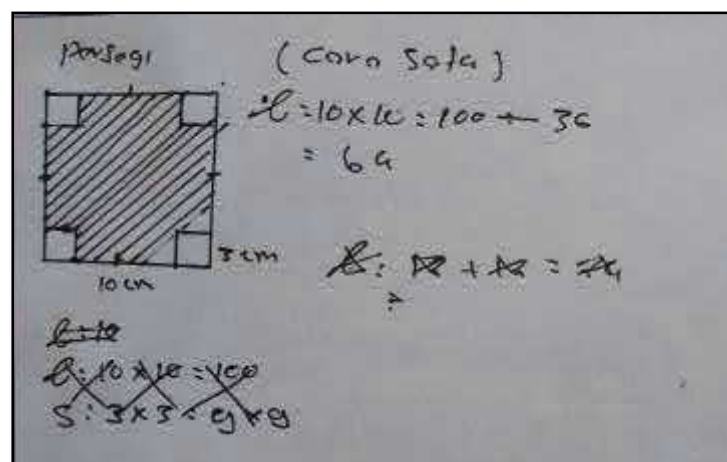 persegi
(Cara Sofa)
L = 10 × 10 = 100 - 36
= 64
3 cm
10 cm
L = 10
L = 10 × 10 = 100
S = 3 × 3 = 9 × 9